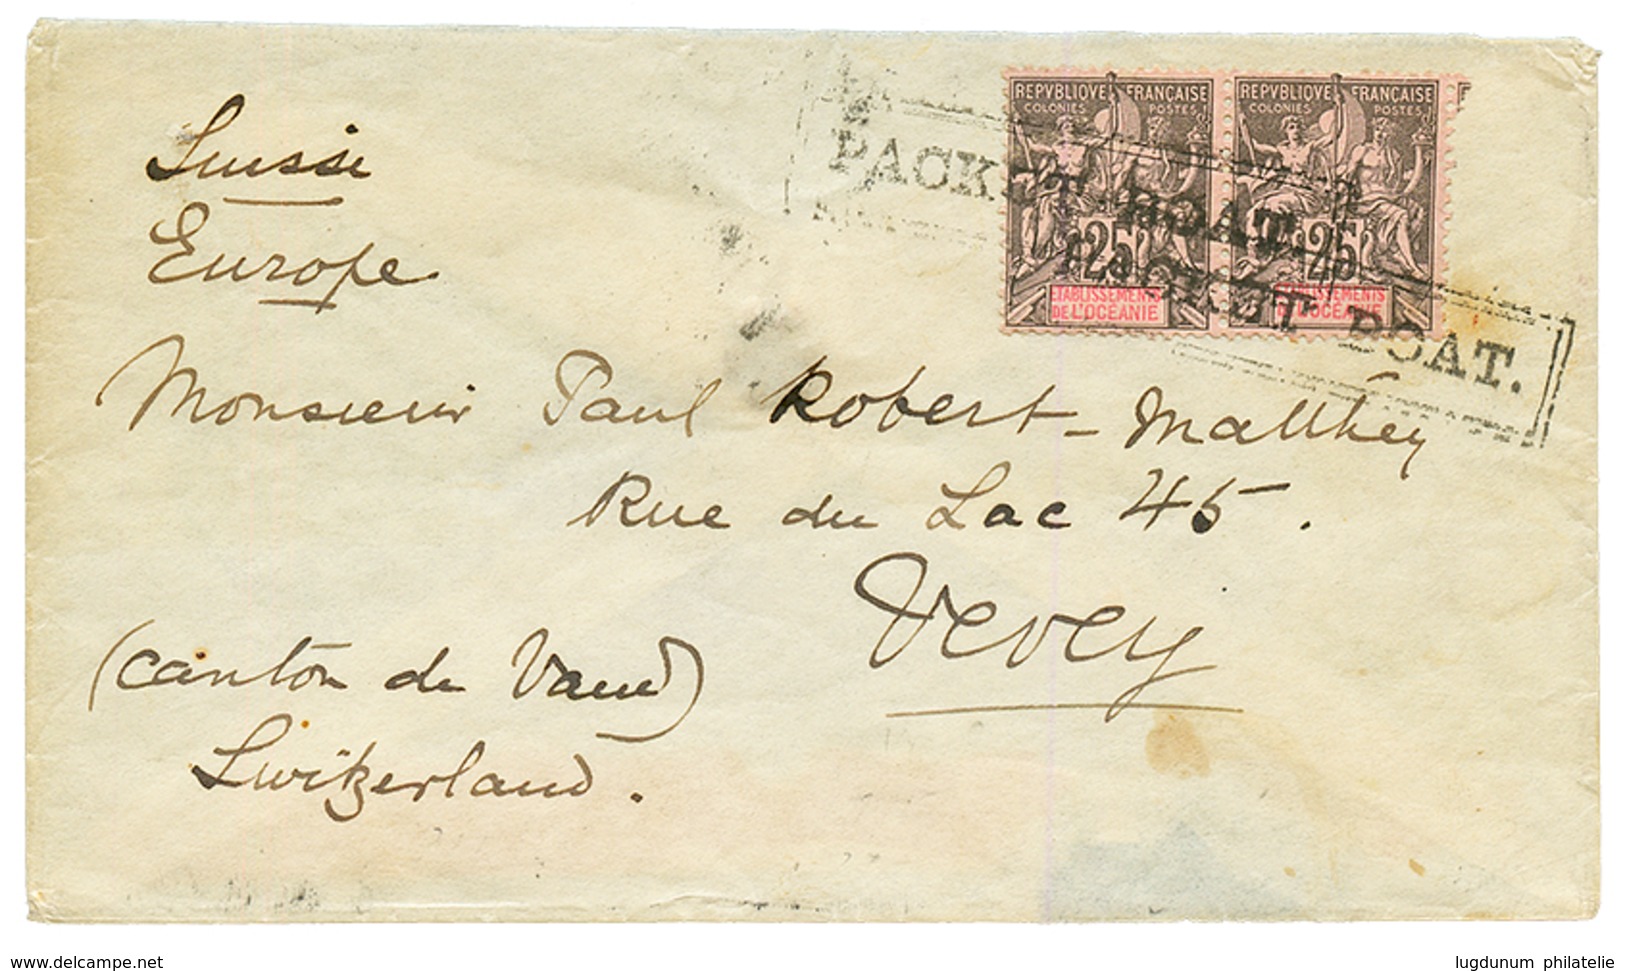 Suisse
Europe
REPVBLIQVE FRANÇAISE
COLONIES POSTES
25
ETABLISSEMENTS
DE L'OCÉANIE
REPVBLIQVE FRANÇAISE
COLONIES POSTES
25
ETABLISSEMENTS
DE L'OCÉANIE
PACKET BOAT.
PACKET BOAT.
Monsieur Paul Robert-Matthey
Rue du Lac 45.
Vevey
(canton de Vaud)
Switzerland.
delcampe.net
lugdunum philatelie